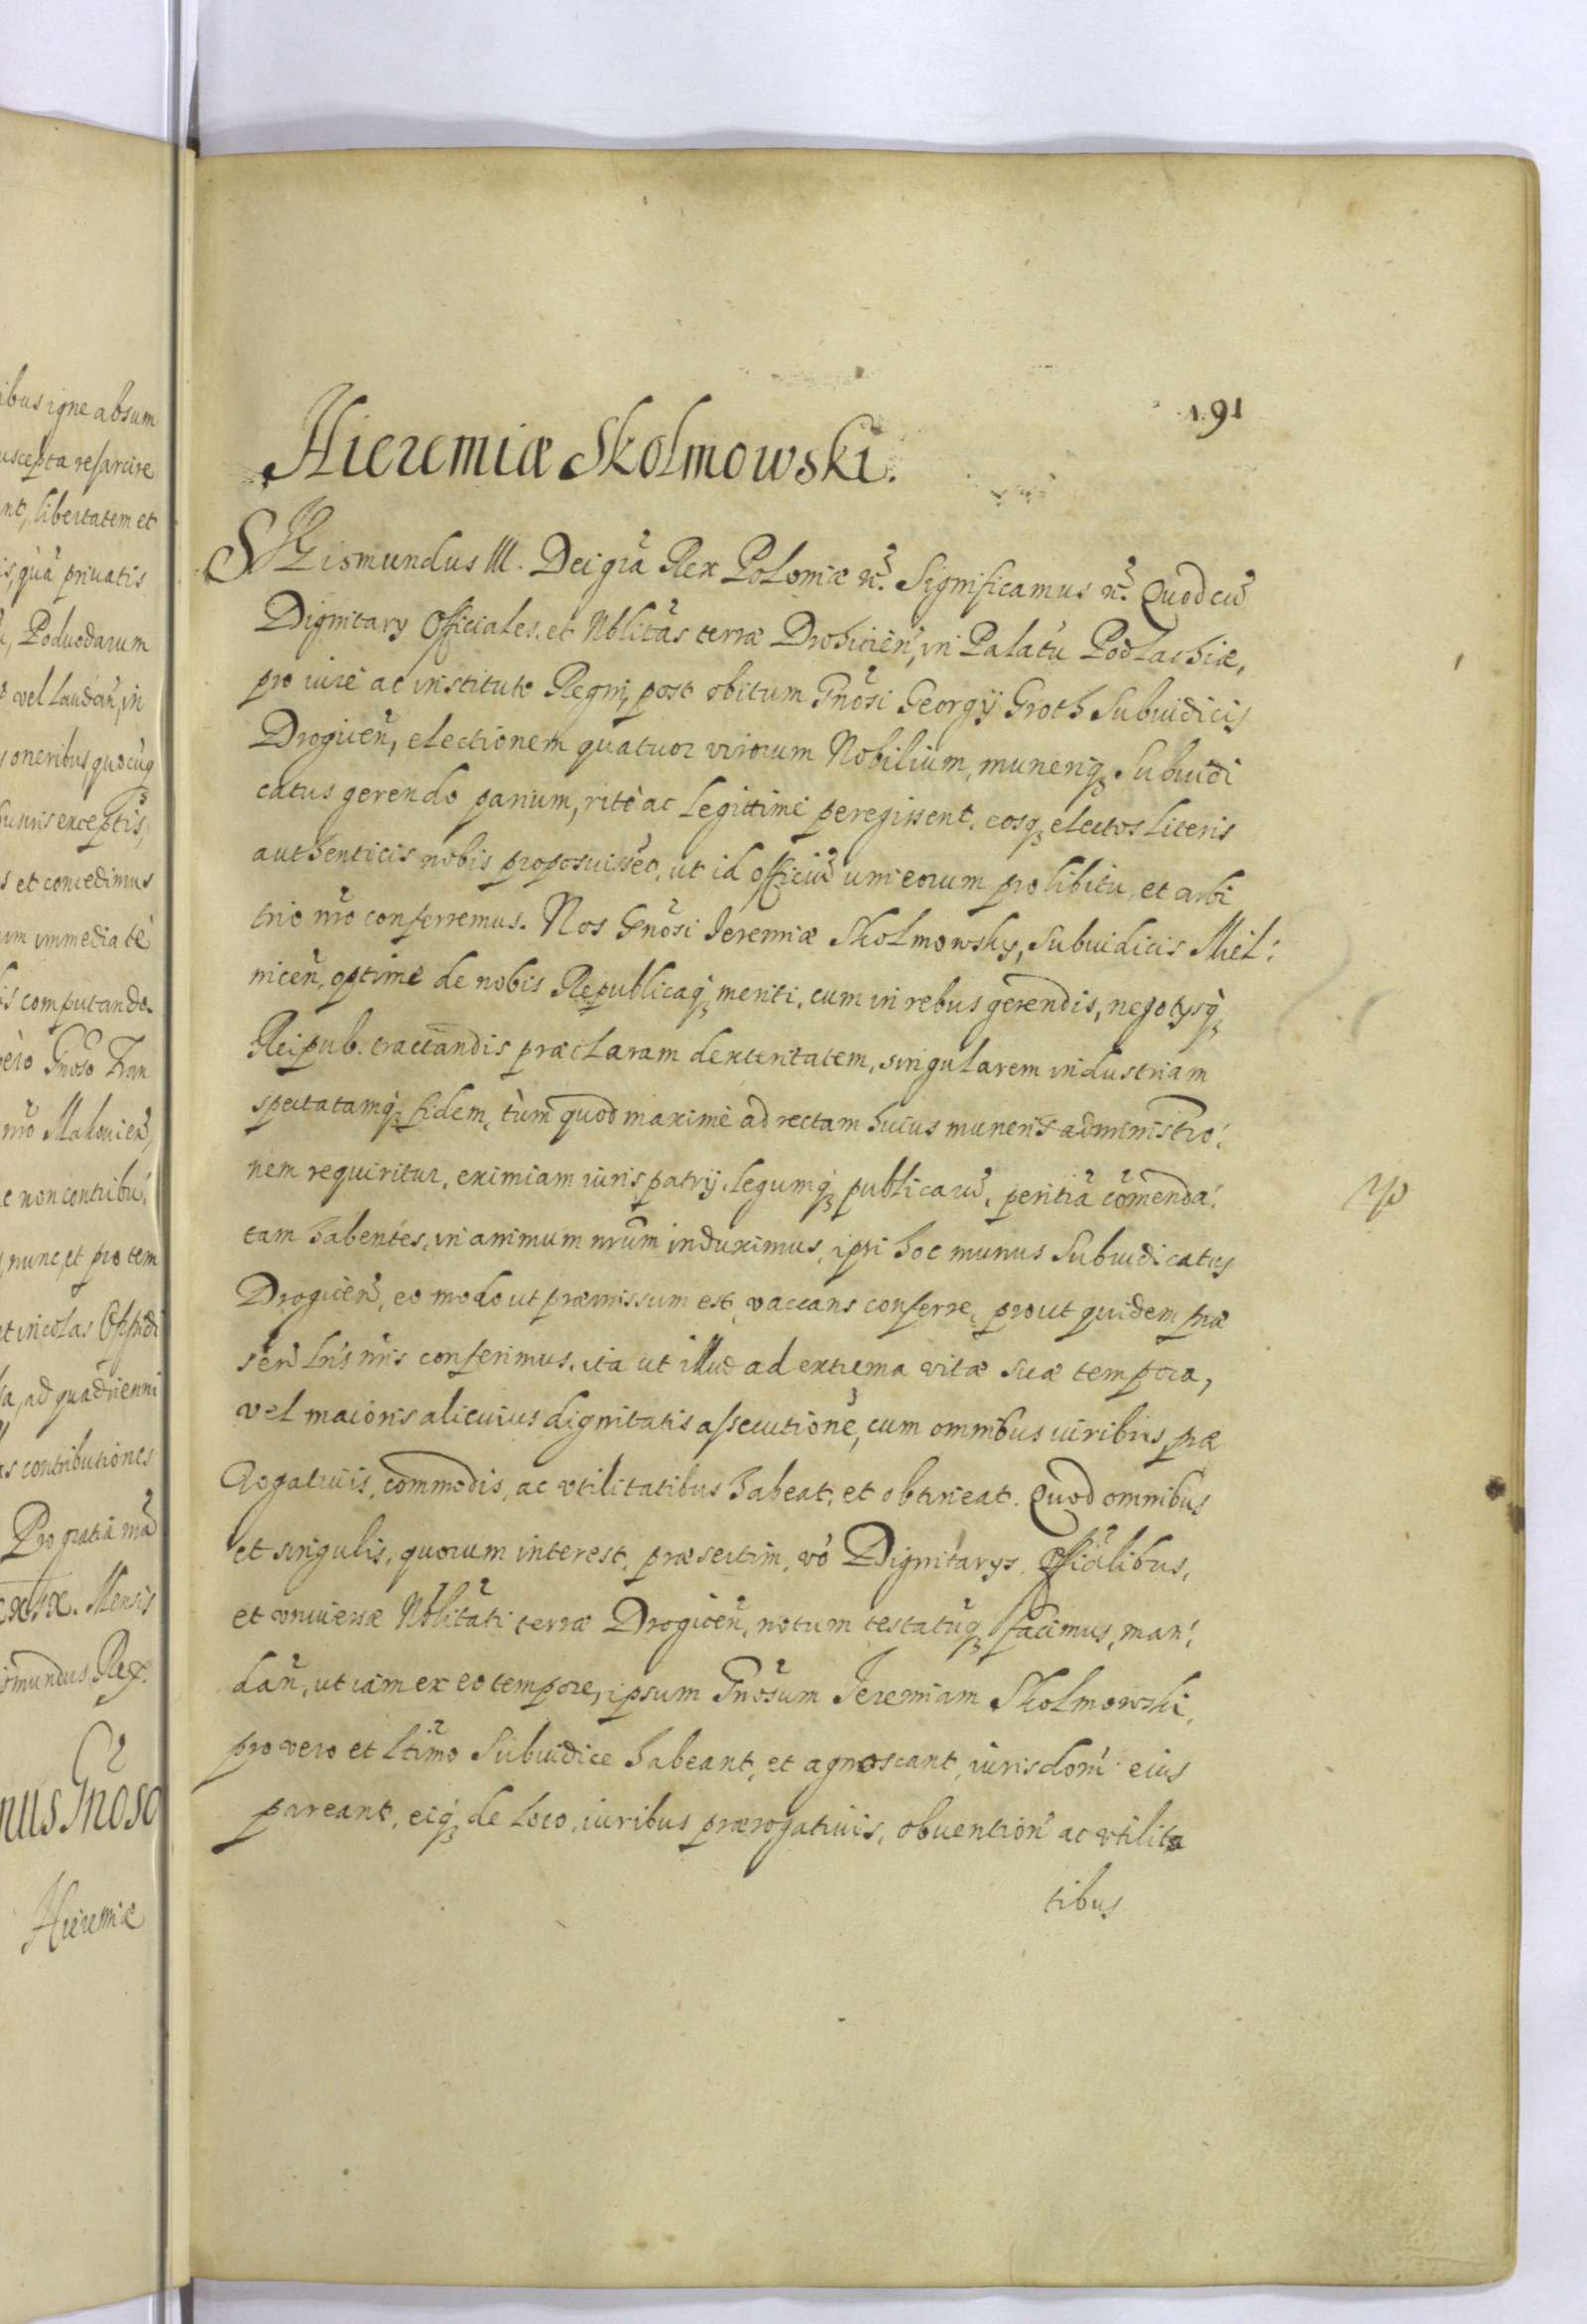 ibus igne absum
uscepta resarcire
nt, libertatem et
is, quã priuatis
Poduodarum
vel laudañ, in
oneribus quocuq
exceptis,
s et concedimus
um immediatè
is computando.
Gnõso Fran
nrõ Makouień
e non contribu
nunc, et pro tem
et incolas Oppidi
ad quadrienni
as contributiones
Pro gratia
Mensis
ismundus Rex.
nus Gnõso
Hieremiæ
191
Hieremiæ Skolmowski.
SIgismundus III. Dei grã Rex Poloniæ ꝛc̃. Significamus ꝛc̃. Quod cũ
Dignitarÿ Officiales, et Nblitãs terræ Drohicień, in Palatũ Podlachiæ,
pro iure ac instituto Regni, post obitum Gnõsi Georgÿ Groth Subiudicis
Drogiceñ, electionem quatuor virorum Nobilium, muneriq̃ Subiudi
catus gerendo parium, ritè ac legittimè peregissent, eosq̃ electos literis
authenticis nobis proposuisseñt, ut id officiũ uni eorum pro libitu, et arbi
trio nrõ conferremus. Nos Gnõsi Jeremiæ Skolmowsky, Subiudicis Miel:
niceñ, optimè de nobis Republicaq̃ meriti, cum in rebus gerendis, negotÿsq̃
Reipub. tractandis præclaram dexteritatem, singularem industriam
spectatamq̃ fidem, tùm quod maximè ad rectam huius muneris administrõ:
nem requiritur, eximiam iuris patrÿ, legumq̃ publicarũ, peritiã cõmenda:
tam habentes, in animum nrũm induximus, ipsi hoc munus Subiudicatus
Drogiceñ, eo modo ut præmissum est, vaccans conferre, prout quidem præ
señ lrĩs nrĩs conferimus, ita ut illud ad extrema vitæ suæ tempora,
vel maioris alicuius dignitatis assecutionẽ, cum omnibus iuribus, præ
rogatiuis, commodis, ac vtilitatibus habeat, et obtineat. Quod omnibus
et singulis, quorum interest, præsertim, vò Dignitarÿs, Officĩalibus,
et vniuersæ Nblitãti terræ Drogiceñ, notum testatũq̃ facimus, man:
dañ, ut iam ex eo tempore, ipsum Gnõsum Jeremiam Skolmowski,
pro vero et ltĩmo Subiudice habeant, et agnoscant, iurisdoñi eius
pareant, eiq̃ de loco, iuribus prærogatiuis, obuentioñ ac vtilita
tibus